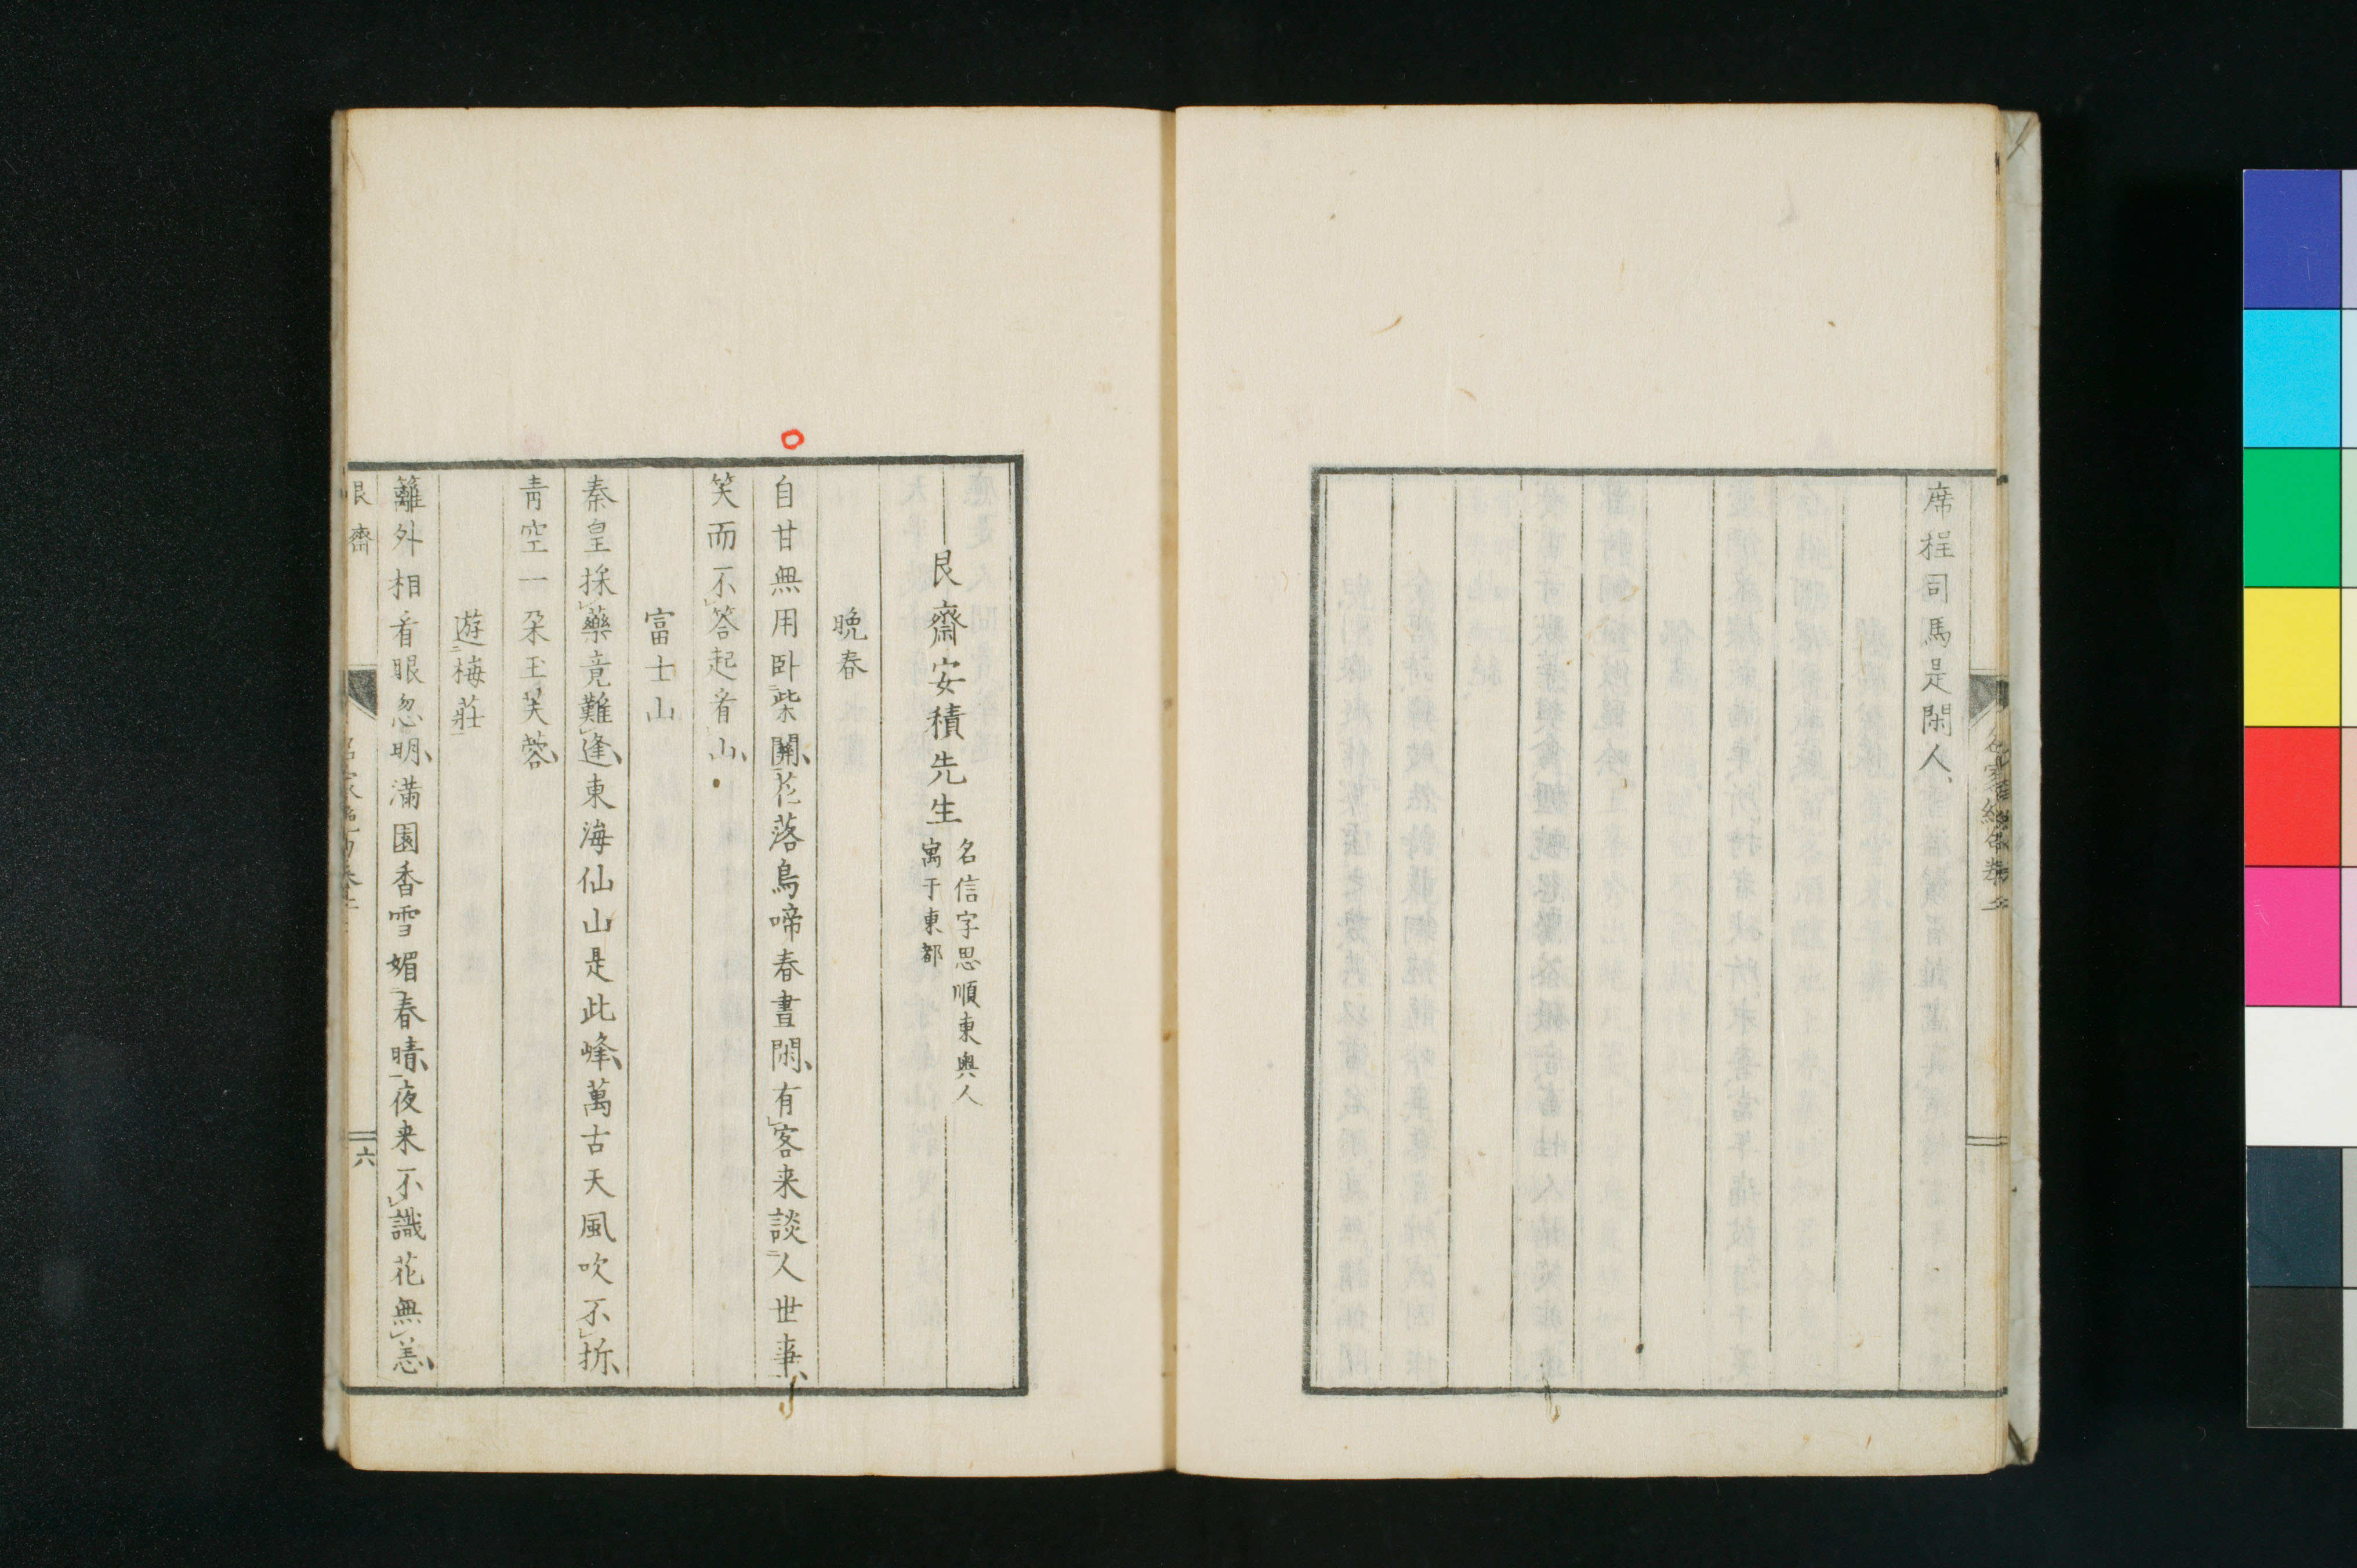 席桯司馬是閑人
艮齋安積先生
名信字思順東奥人
寓于東都
晩春
自甘無用卧柴關花落鳥啼春晝閑有客来談人世事
笑而不答起看山
富士山
秦皇採藥竟難逢東海仙山是此峰萬古天風吹不折
青空一朶玉芙蓉
遊梅莊
籬外相看眼忽明滿園香雪媚春晴夜来不識花無恙
艮齋
六